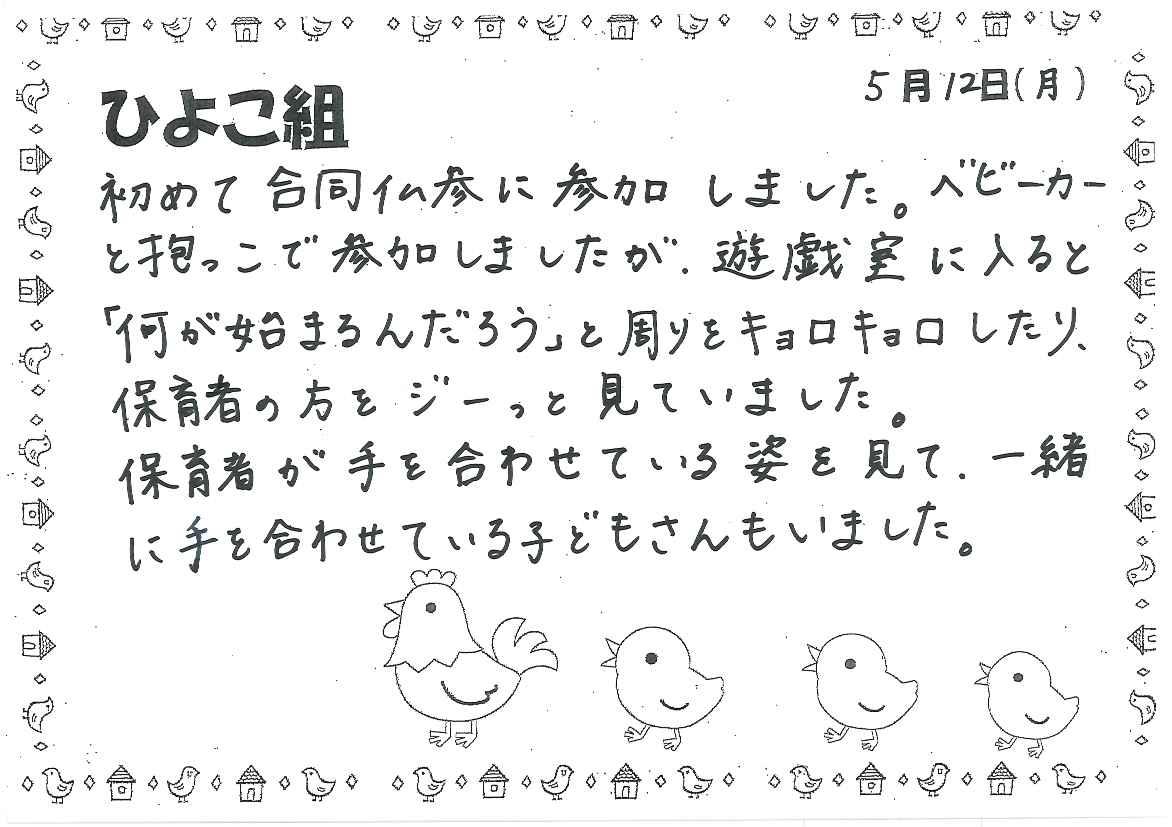 5月12日(月)
ひよこ組
初めて合同仏参に参加しました。ベビーカー
と抱っこで参加しましたが、遊戯室に入ると
「何が始まるんだろう」と周りをキョロキョロしたり、
保育者の方をジーっと見ていました。
保育者が手を合わせている姿を見て、一緒
に手を合わせている子どもさんもいました。